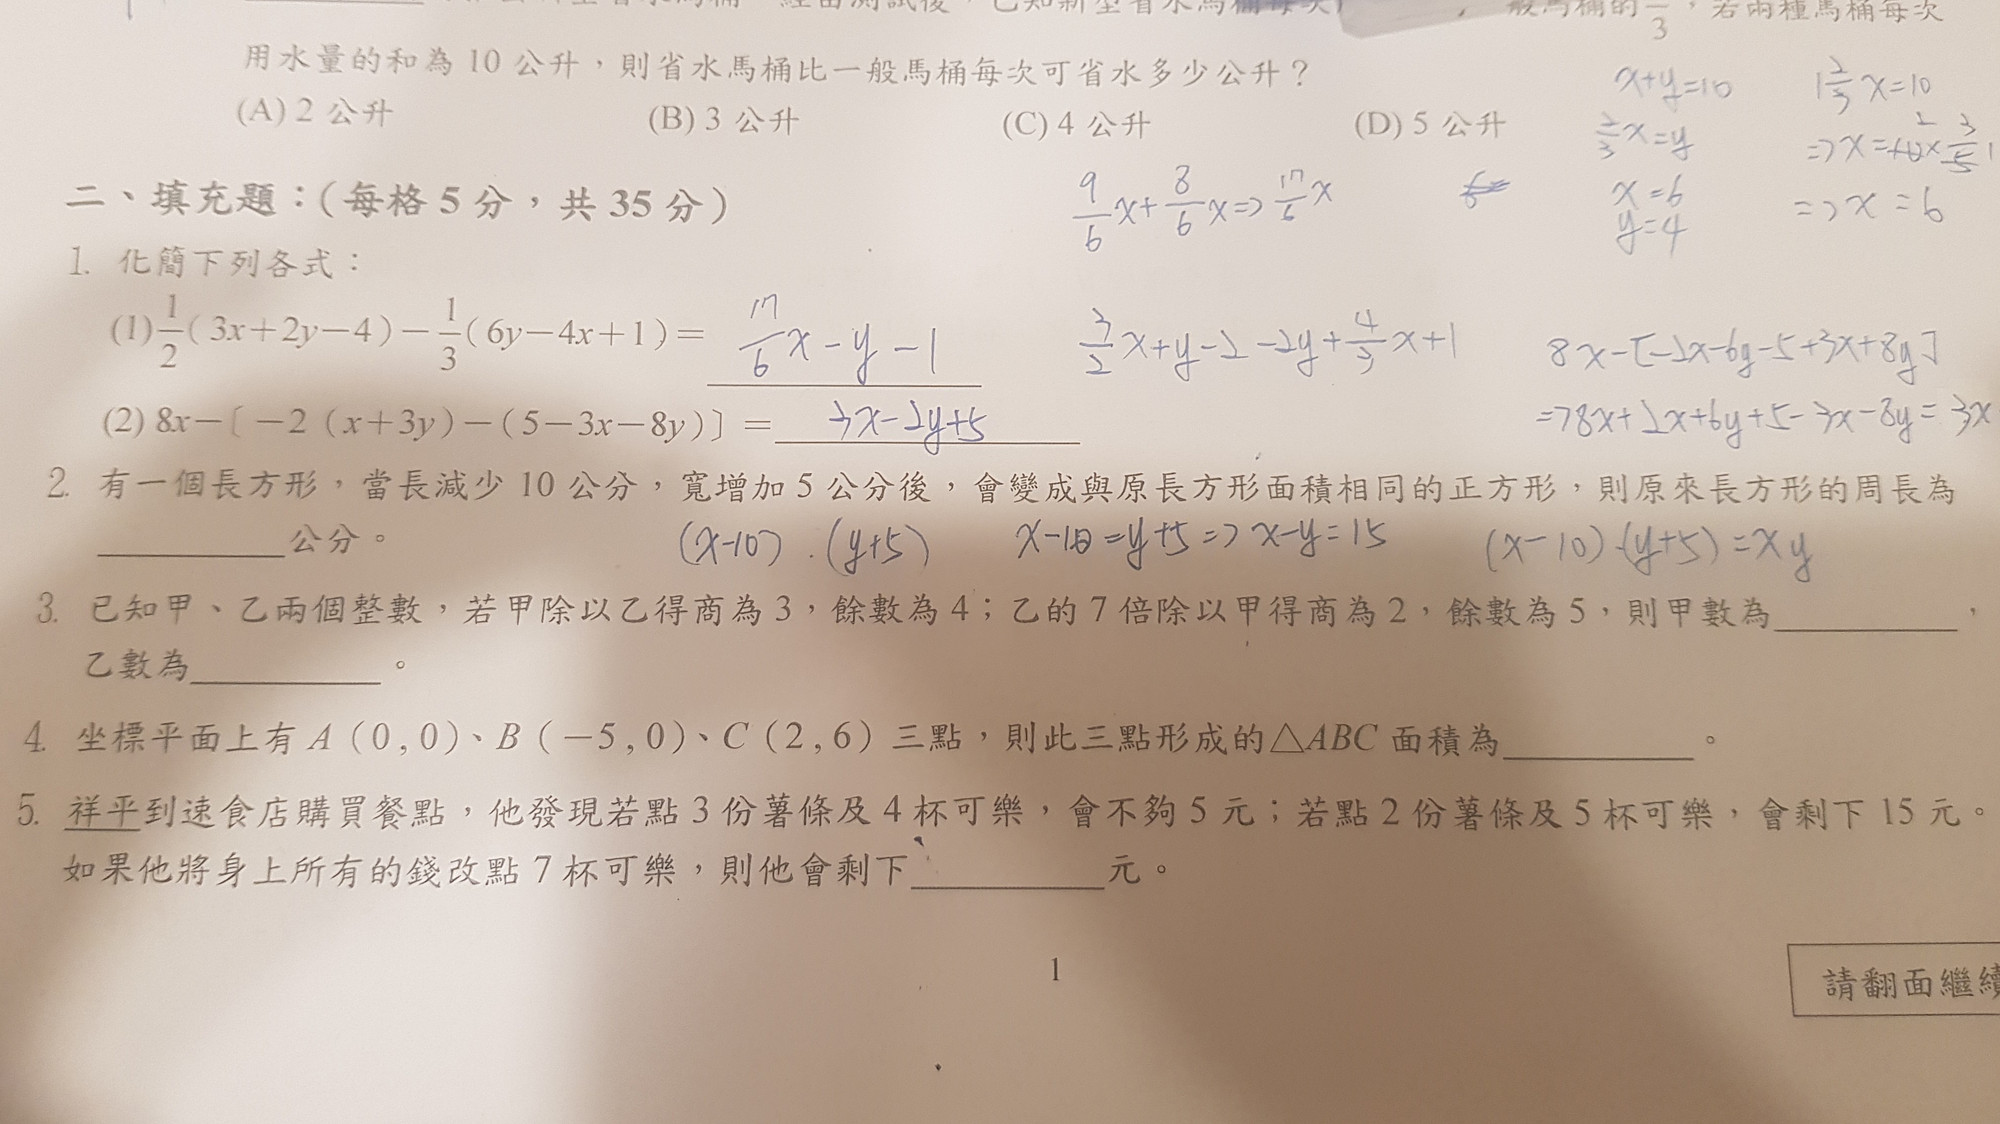 一般馬桶的 2/3，若兩種馬桶每次
用水量的和為 10 公升，則省水馬桶比一般馬桶每次可省水多少公升？
(A) 2 公升 (B) 3 公升 (C) 4 公升 (D) 5 公升
x+y=10
2/3 x=y
x=6
y=4
1 2/3 x=10
=>x=
=>x=6
二、填充題：（每格 5 分，共 35 分）
9/6 x+8/6 x=>17/6 x
1. 化簡下列各式：
(1) 1/2 (3x+2y−4)−1/3 (6y−4x+1)= 17/6 x-y-1
3/2 x+y-2-2y+4/3 x+1
(2) 8x−〔−2（x+3y）−（5−3x−8y）〕= 7x-2y+5
8x-[-2x-6y-5+3x+8y]
=>8x+2x+6y+5-3x-8y= 3x
2. 有一個長方形，當長減少 10 公分，寬增加 5 公分後，會變成與原長方形面積相同的正方形，則原來長方形的周長為
公分。
(x-10)．(y+5) x-10=y+5=>x-y=15 (x-10)·(y+5)=xy
3. 已知甲、乙兩個整數，若甲除以乙得商為 3，餘數為 4；乙的 7 倍除以甲得商為 2，餘數為 5，則甲數為，
乙數為。
4. 坐標平面上有 A（0 , 0）、B（−5 , 0）、C（2 , 6）三點，則此三點形成的△ABC 面積為。
5. 祥平到速食店購買餐點，他發現若點 3 份薯條及 4 杯可樂，會不夠 5 元；若點 2 份薯條及 5 杯可樂，會剩下 15 元。
如果他將身上所有的錢改點 7 杯可樂，則他會剩下元。
1
請翻面繼續